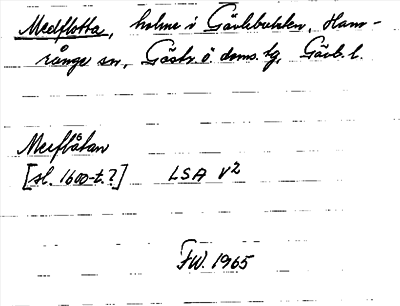 Medflotta, holme i Gävlebukten, Ham-
rånge sn, Gästr. ö. doms. tg, Gävb. l.
Medflåtan
[sl. 1600-t.?] LSA V2
FW. 1965